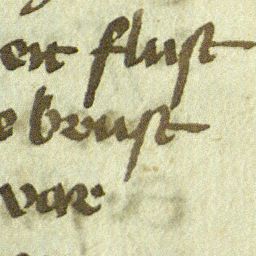 en flust
e brust
var